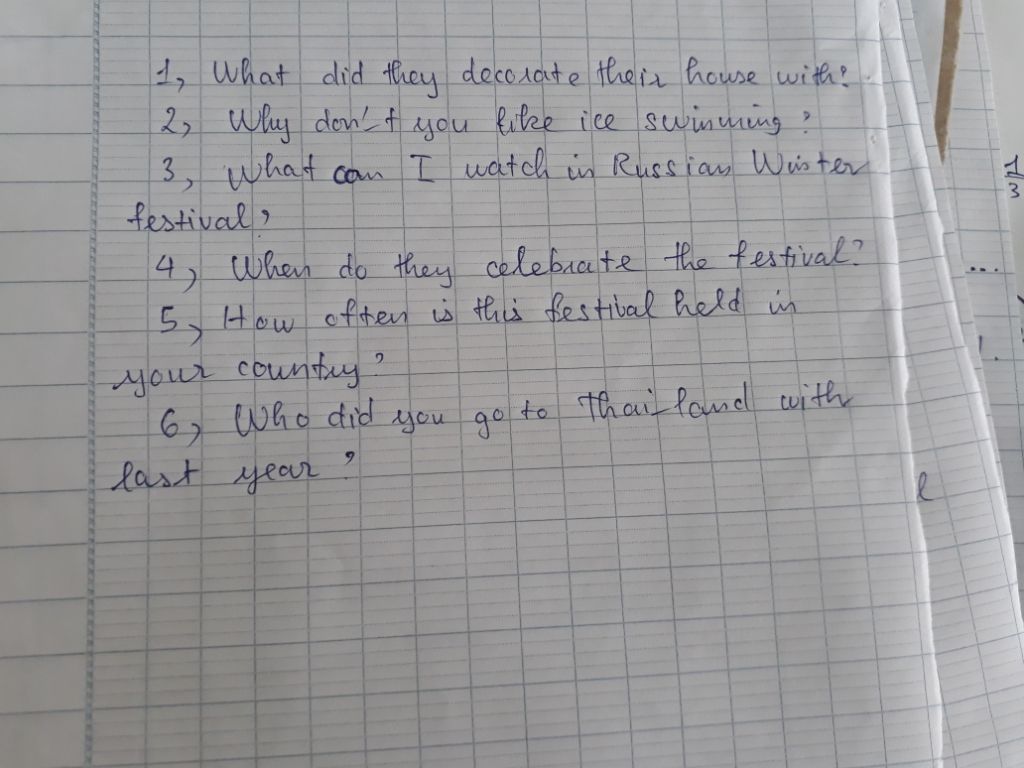 1, What did they decorate their house with?
2, Why don't you like ice swimming?
3, What can I watch in Russian Winter
festival?
4, When do they celebrate the festival?
5, How often is this festival held in
your country?
6, Who did you go to Thailand with
last year?
1
3
...
!.
l